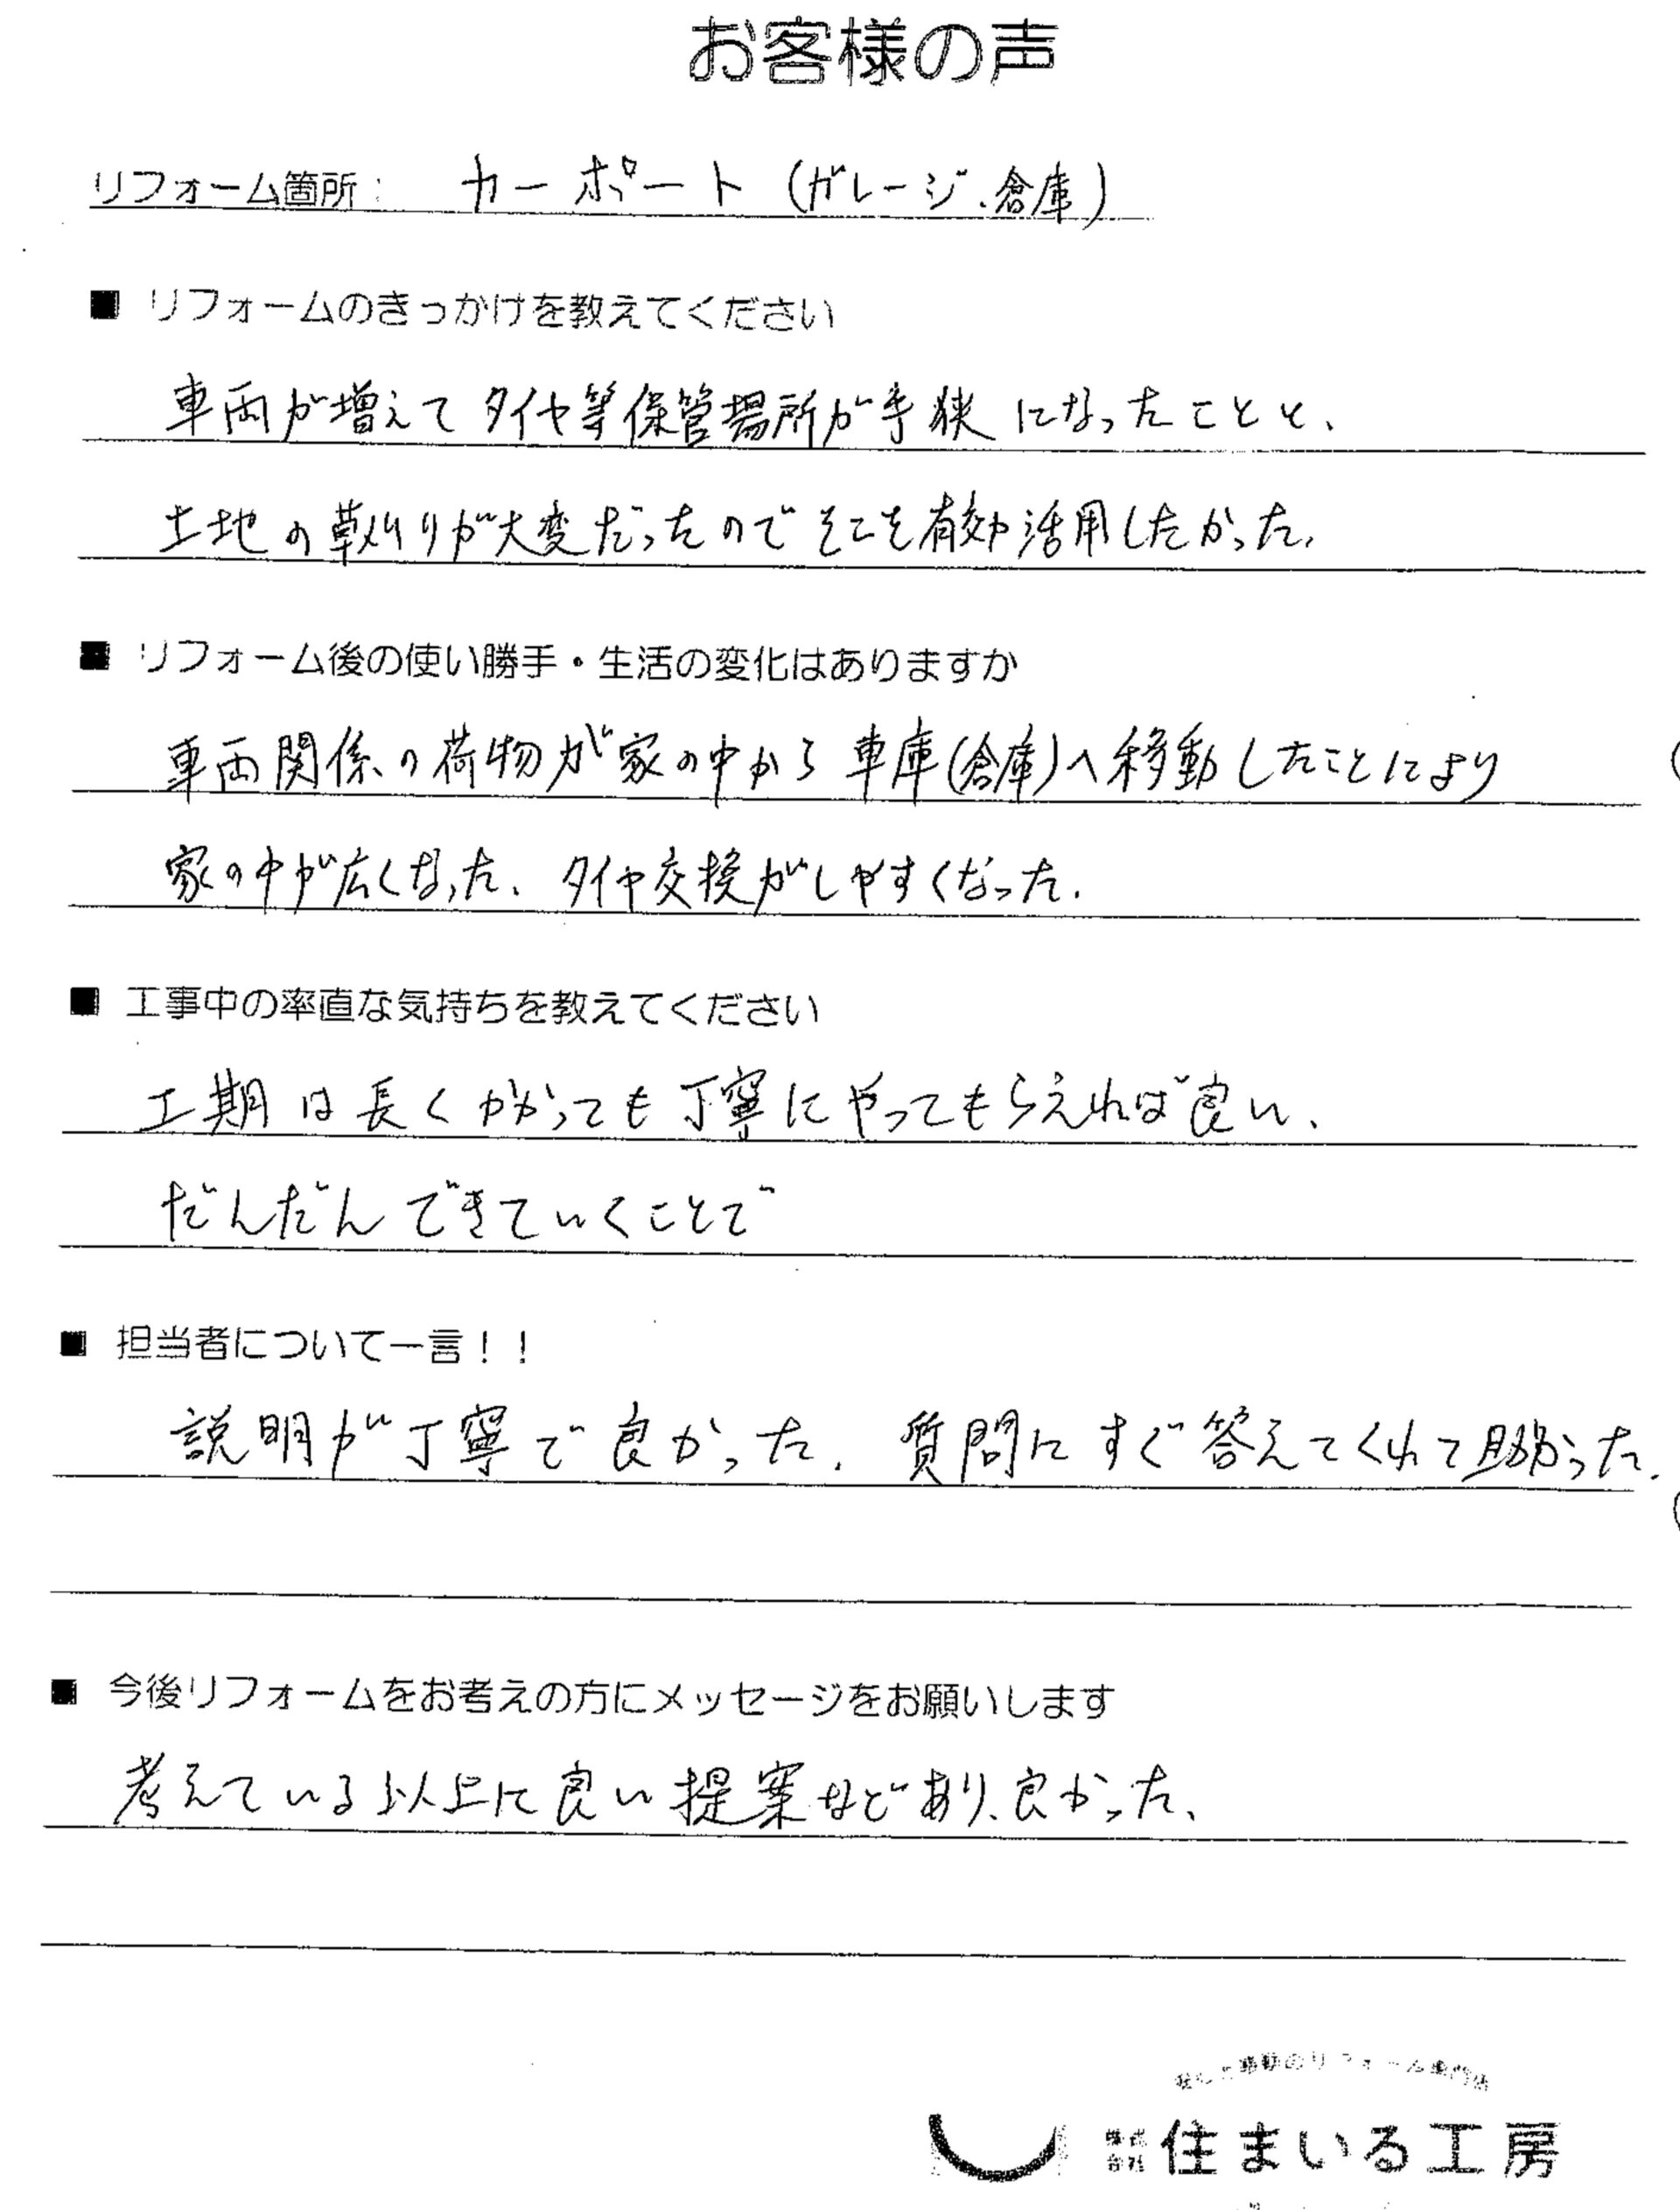 お客様の声
リフォーム箇所: カーポート(ガレージ、倉庫)
■ リフォームのきっかけを教えてください
車両が増えてタイヤ等保管場所が手狭になったことと、
土地の草刈りが大変だったのでそこを有効活用したかった。
■ リフォーム後の使い勝手・生活の変化はありますか
車両関係の荷物が家の中から車庫(倉庫)へ移動したことにより
家の中が広くなった。タイヤ交換がしやすくなった。
■ 工事中の率直な気持ちを教えてください
工期は長くかかっても丁寧にやってもらえれば良い、
だんだんできていくことで
■ 担当者について一言!!
説明が丁寧で良かった。質問にすぐ答えてくれて助かった。
■ 今後リフォームをお考えの方にメッセージをお願いします
考えている以上に良い提案などあり、良かった、
株式会社 住まいる工房